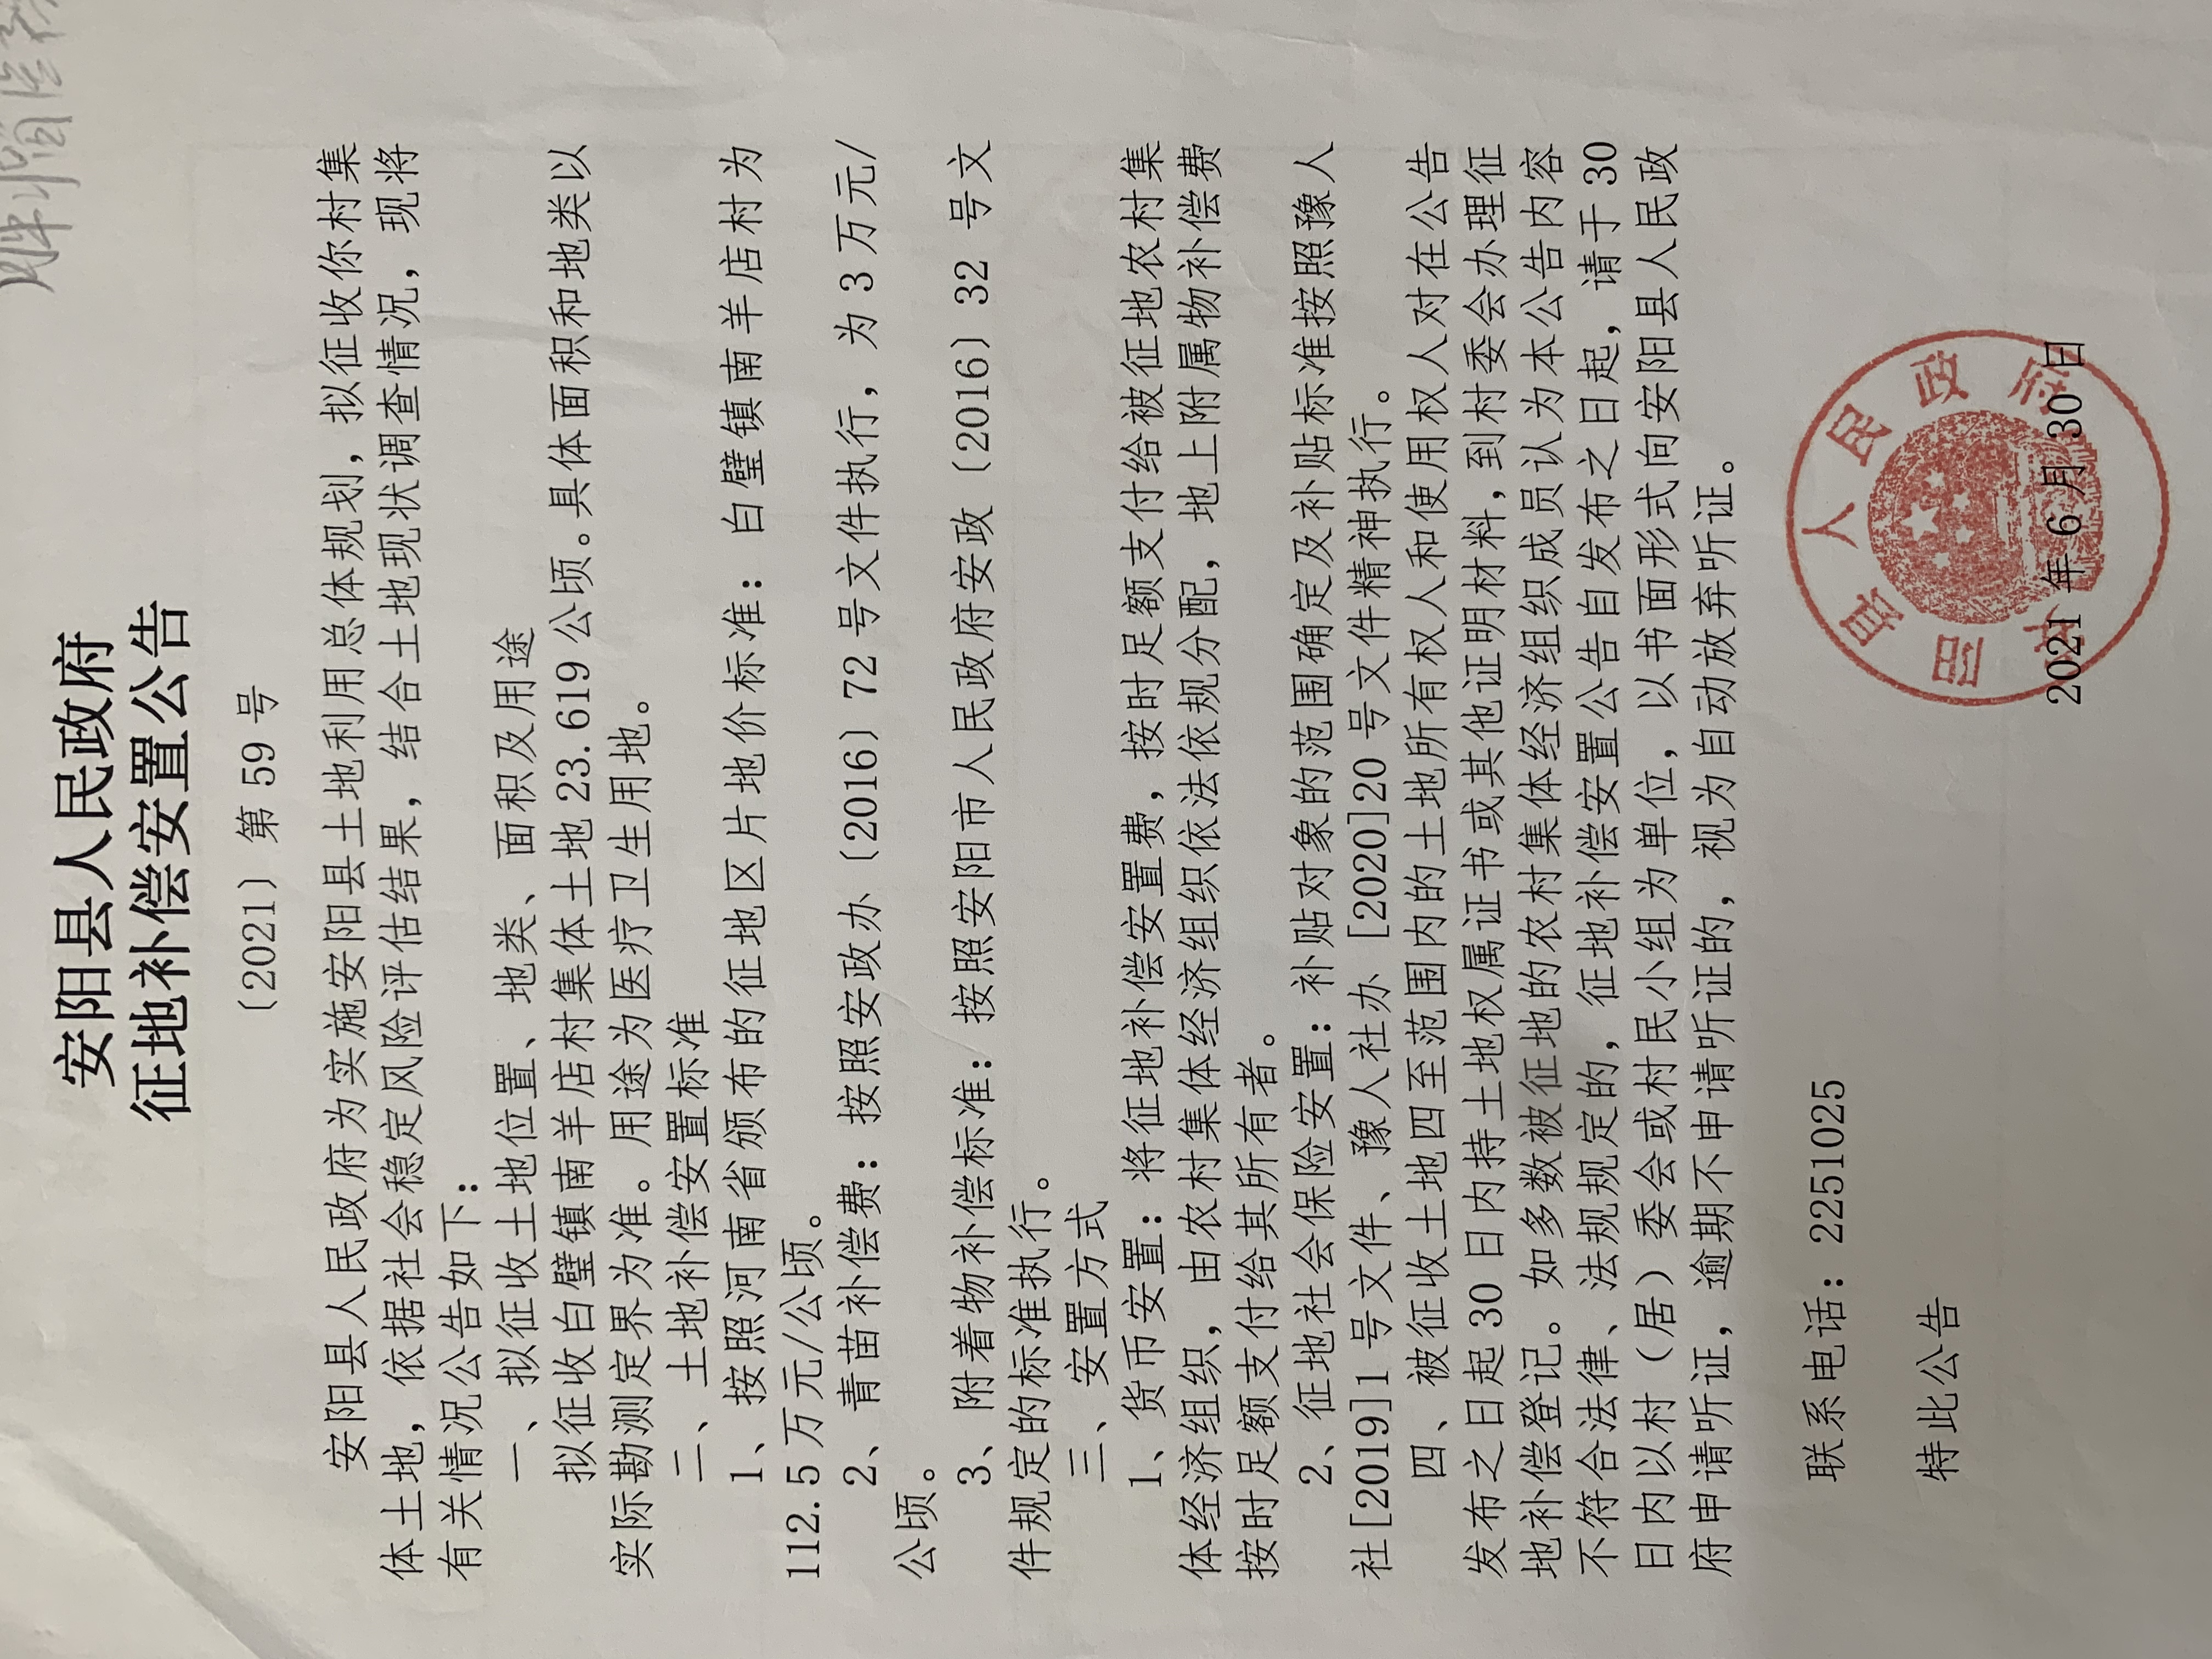 安阳县人民政府
征地补偿安置公告
〔2021〕第 59 号
安阳县人民政府为实施安阳县土地利用总体规划，拟征收你村集
体土地，依据社会稳定风险评估结果，结合土地现状调查情况，现将
有关情况公告如下：
一、拟征收土地位置、地类、面积及用途
拟征收白璧镇南羊店村集体土地 23.619 公顷。具体面积和地类以
实际勘测定界为准。用途为医疗卫生用地。
二、土地补偿安置标准
1、按照河南省颁布的征地区片地价标准：白璧镇南羊店村为
112.5 万元/公顷。
2、青苗补偿费：按照安政办〔2016〕72 号文件执行，为 3 万元/
公顷。
3、附着物补偿标准：按照安阳市人民政府安政〔2016〕32 号文
件规定的标准执行。
三、安置方式
1、货币安置：将征地补偿安置费，按时足额支付给被征地农村集
体经济组织，由农村集体经济组织依法依规分配，地上附属物补偿费
按时足额支付给其所有者。
2、征地社会保险安置：补贴对象的范围确定及补贴标准按照豫人
社[2019]1 号文件、豫人社办 [2020]20 号文件精神执行。
四、被征收土地四至范围内的土地所有权人和使用权人对在公告
发布之日起 30 日内持土地权属证书或其他证明材料，到村委会办理征
地补偿登记。如多数被征地的农村集体经济组织成员认为本公告内容
不符合法律、法规规定的，征地补偿安置公告自发布之日起，请于 30
日内以村（居）委会或村民小组为单位，以书面形式向安阳县人民政
府申请听证，逾期不申请听证的，视为自动放弃听证。
联系电话：2251025
特此公告
安阳县人民政府
2021 年 6 月 30 日